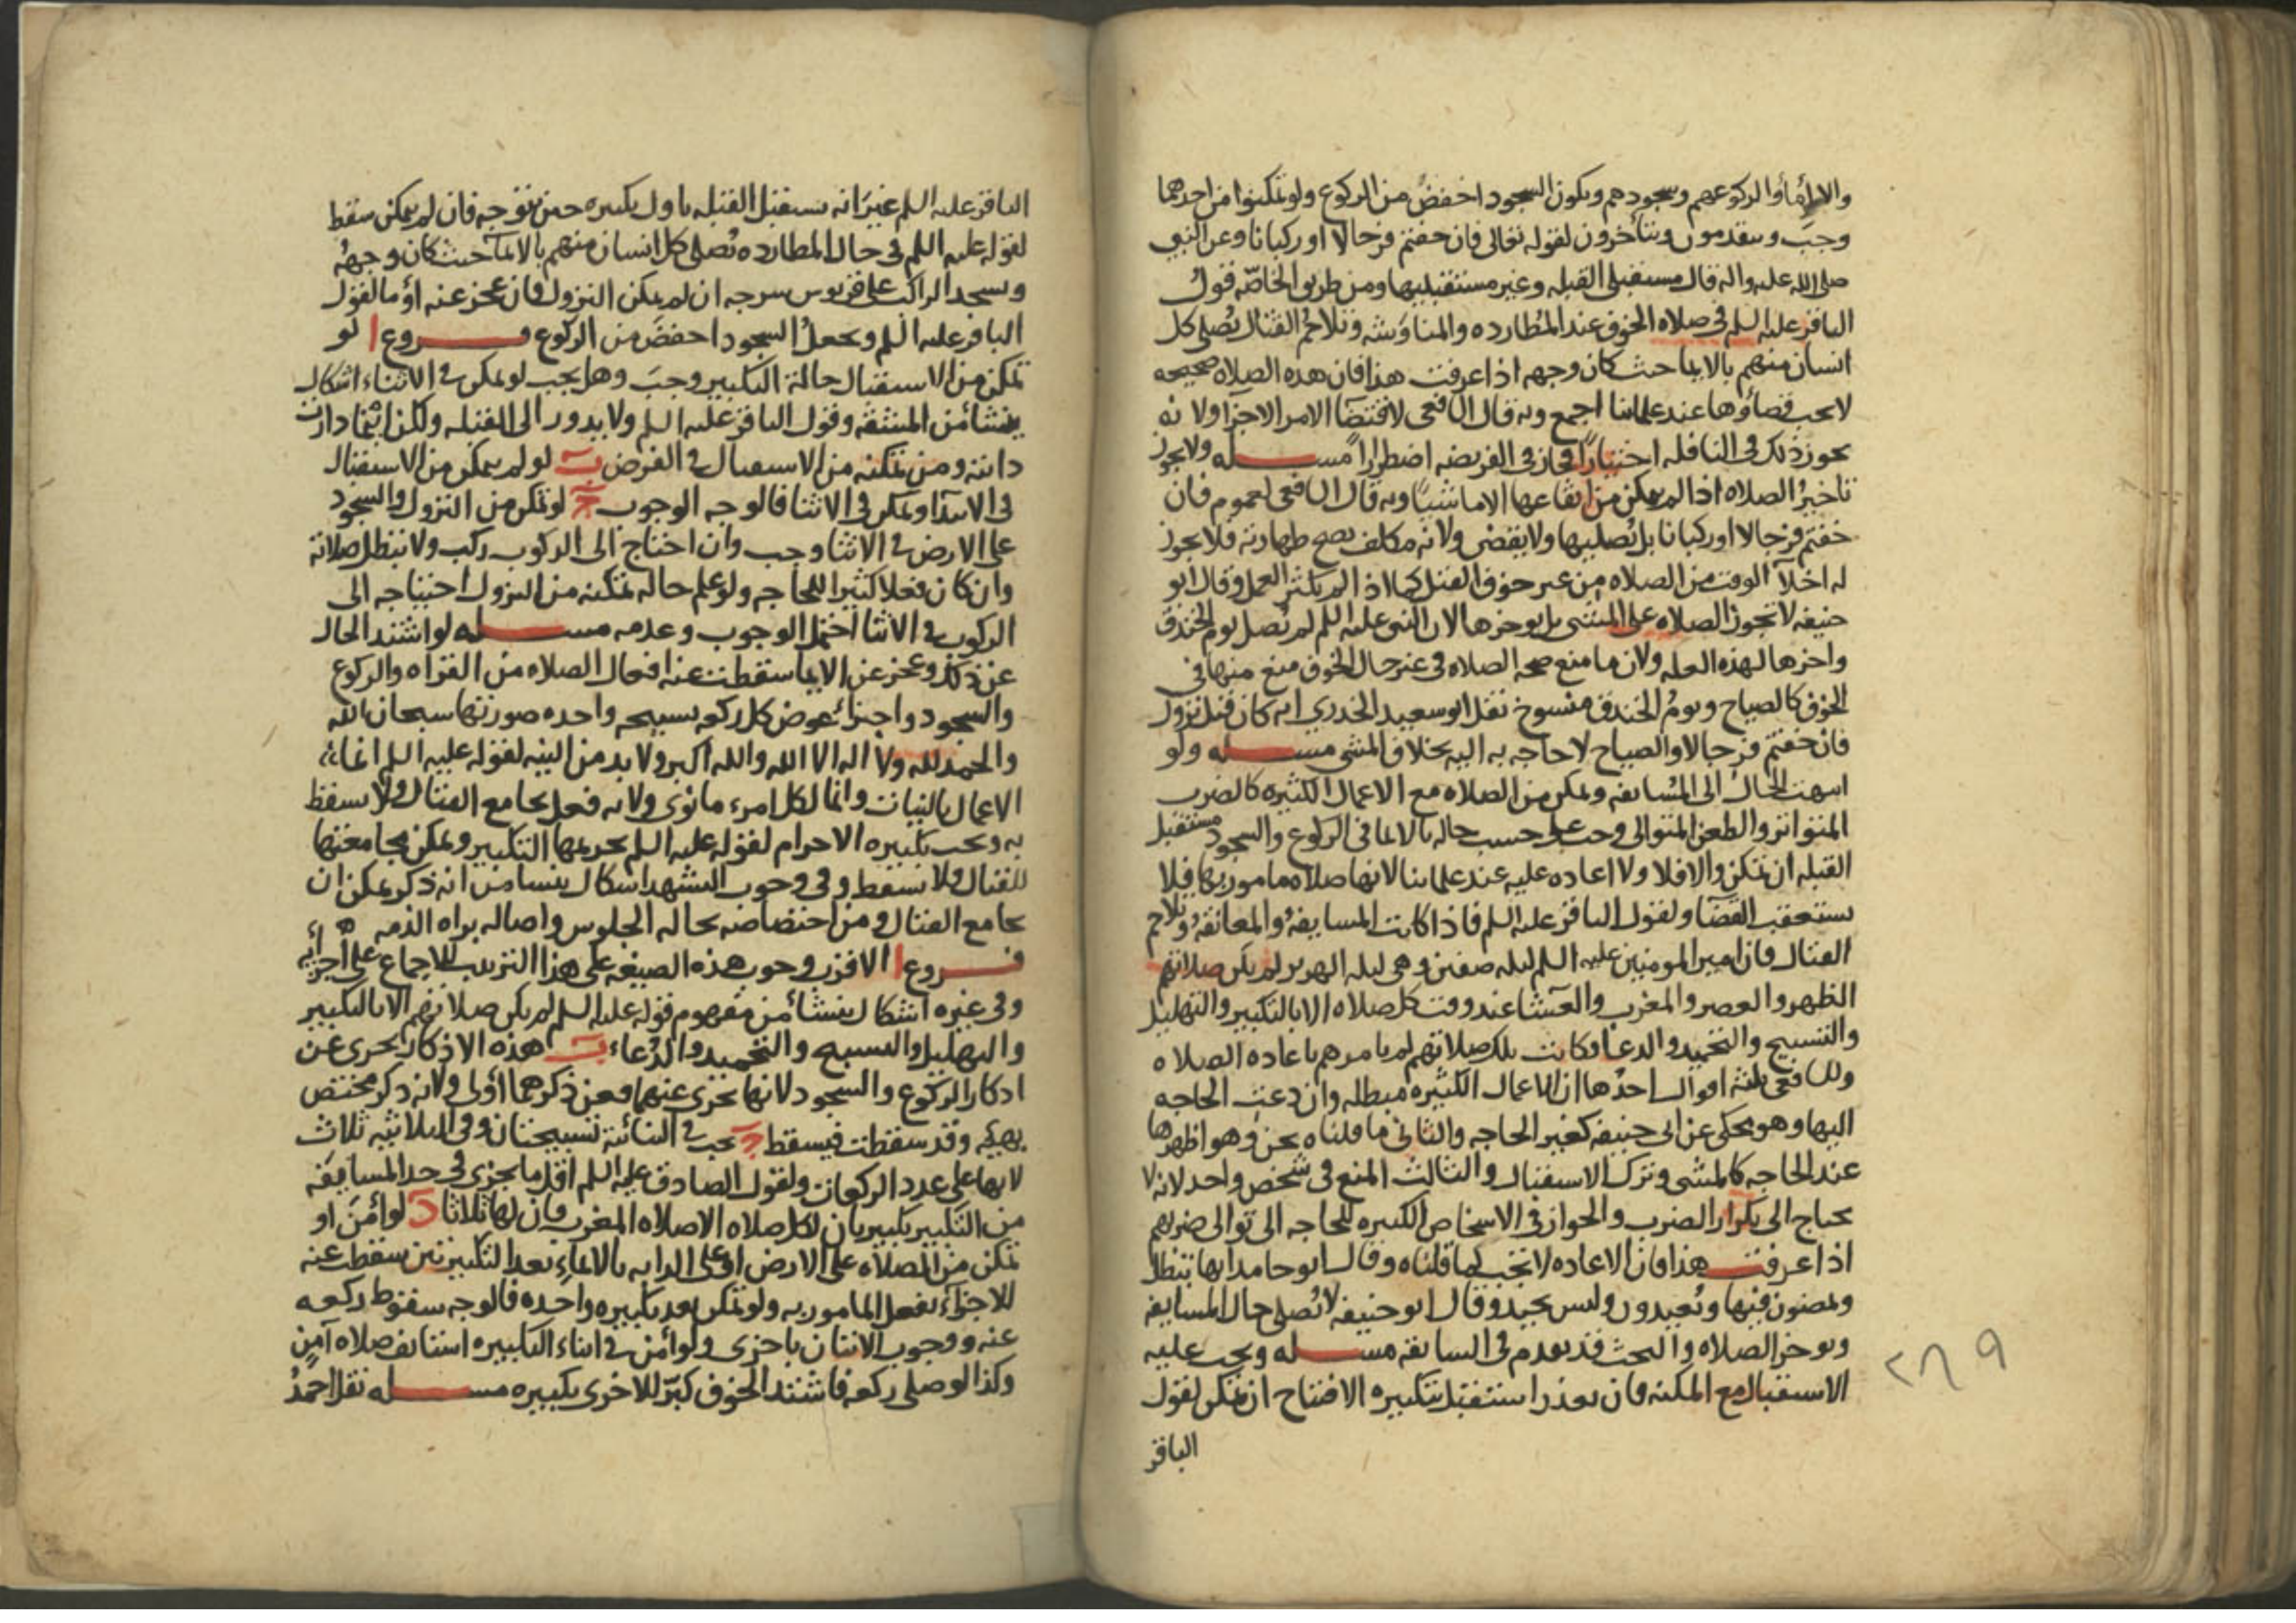 والا اومأوا لركوعهم وسجودهم ويكون السجود اخفض من الركوع ولو تمكنوا من احدهما
وجب ويتقدمون ويتأخرون لقوله تعالى فان خفتم فرجالا او ركبانا وعن النبي
صلى الله عليه واله قال مستقبلى القبله وغير مستقبليها ومن طريق الخاصّه قول
الباقر عليه السلم فى صلاه الخوف عند المُطارده والمناوَشه وتلاحُم القتال يُصلى كل
انسان منهم بالايما حيث كان وجهه اذا عرفت هذا فان هذه الصلاه صحيحه
لا يجب قضاؤها عند علمائنا اجمع وبه قال الشافعى لاقتضآ الامر الاجزا ولانه
يجوز ذلك فى النافله اختيارًا فجاز فى الفريضه اضطرارًا مسـله ولا يجوز
تاخيرُ الصلاه اذا لم يمكن من ايقاعها الا ماشيًا وبه قال الشافعى لعموم فان
خفتم فرجالا او ركبانا بل يُصليها ولا يقضى ولانه مكلف يصح طهارته فلا يجوز
له اخلآ الوقت من الصلاه من غير خوف القتل كما اذا لم يكثر العمل وقال ابو
حنيفه لا تجوز الصلاه على المشى بل يوخرها لان النبى عليه السلم لم يُصل يوم الخندق
واخرها لهذه العله ولان ما منع صحه الصلاه فى غير حال الخوف منع منها فى
الخوف كالصياح ويومُ الخندق منسوخ نقل ابو سعيد الخدري انه كان قبل نزول
فان خفتم فرجالا والصياح لا حاجه به اليه بخلاف المشى مسـله ولو
انتهت الحالُ الى المُسايفه وتمكن من الصلاه مع الاعمال الكثيره كالضرب
المتواتر والطعن المتوالى وجب على حسب حاله بالايما فى الركوع والسجود مستقبل
القبله ان تمكن والا فلا ولا اعاده عليه عند علمائنا لانها صلاه مامور بها فلا
يستعقب القضآ ولقول الباقر عليه السلم فاذا كانت المسايفهُ والمعانقهُ وتلاحم
القتال فان امير المومنين عليه السلم ليله صفين وهى ليله الهرير لم يكن صلاتهم
الظهر والعصر والمغرب والعشآ عند وقت كل صلاه الا بالتكبير والتهليل
والتسبيح والتحميد والدعا فكانت تلك صلاتهم لم يامرهم باعاده الصلاه
وللشافعى ثلثه اقوال احدُها ان الاعمال الكثيره مبطله وان دعت الحاجه
اليها وهو محكى عن ابى حنيفه كغير الحاجه والثانى ما قلناه نحن وهو اظهرها
عند الحاجه كالمشى وترك الاستقبال والثالث المنع فى شخص واحد لانه لا
يحتاج الى تكرار الضرب والجواز فى الاشخاص الكثيره للحاجه الى توالى ضربهم
اذا عرفت هذا فان الاعاده لا تجب كما قلناه وقال ابو حامد انها تبطل
ويمضون فيها ويُعيدون وليس بجيد وقال ابو حنيفه لا يُصلى حال المسايفه
ويوخر الصلاه والبحث قد تقدم فى السابقه مسـله ويجب عليه
الاستقبال مع المكنه فان تعذر استقبل بتكبيره الافتتاح ان تمكن لقول
الباقر
٢٦٩
الباقر عليه السلم غير انه يستقبل القبله باول تكبيره حين يتوجه فان لم يتمكن سقط
لقوله عليه السلم فى حال المطارده يُصلى كل انسان منهم بالايمآ حيث كان وجههُ
ويسجد الراكب على قربوس سرجه ان لم يمكن النزول فان عجز عنه اومأ لقول
الباقر عليه السلم ويجعلُ السجود اخفضَ من الركوع فـروع ا لو
تمكن من الاستقبال حالة التكبير وجبَ وهل يجب لو تمكن فى الاثناء اشكال
ينشأ من المشقه وقول الباقر عليه السلم ولا يدور الى القبله ولكن اينما دارت
دابته ومن تمكنه من الاستقبال فى الفرض ب لو لم يتمكن من الاستقبال
فى الابتدآ وتمكن فى الاثنا فالوجه الوجوب ج لو تمكن من النزول والسجود
على الارض فى الاثنا وجب وان احتاج الى الركوب ركب ولا تبطل صلاته
وان كان فعلا كثيرا للحاجه ولو علم حاله تمكنه من النزول احتياجه الى
الركوب فى الاثنا احتمل الوجوب وعدمه مسـله لو اشتد الحال
عن ذلك وعجز عن الايما سقطت عنه افعال الصلاه من القراه والركوع
والسجود واجتزأ عوض كل ركعه بتسبيحه واحده صورتها سبحان الله
والحمد لله ولا اله الا الله والله اكبر ولا بد من النيه لقوله عليه السلم انما
الاعمال بالنيات وانما لكل امرء ما نوى ولانه فعل يجامع القتال ولا يسقط
به ويجب تكبيره الاحرام لقوله عليه السلم تحريمها التكبير ويمكن مجامعتها
للقتال فلا تسقط وفى وجوب التشهد اشكال ينشا من انه ذكر يمكن ان
يجامع القتال ومن اختصاصه بحاله الجلوس واصاله براه الذمه
فـروع ا الاقرب وجوب هذه الصيغه على هذا الترتيب للاجماع على اجزائه
وفى غيره اشكال ينشأ من مفهوم قوله عليه السلم لم يكن صلاتهم الا بالتكبير
والتهليل والتسبيح والتحميد والدُعاء ب هذه الاذكار يجزى عن
اذكار الركوع والسجود لانها تجزى عنهما فعن ذكرهما أولى ولانه ذكر مختص
بهيئه وقد سقطت فيسقط ج يجب فى الثنائية تسبيحتان وفى الثلاثيه ثلاث
لانها على عدد الركعات ولقول الصادق عليه السلم اقل ما يجزى فى حد المسايفه
من التكبير تكبيرتان لكل صلاه الا صلاه المغرب فان لها ثلاثا د لو أمنَ او
تمكن من الصلاه على الارض او على الدابه بالايماء بعد التكبيرتين سقطت عنه
للاجزآء بفعل المامور به ولو تمكن بعد تكبيره واحده فالوجه سقوط ركعه
عنه ووجوب الاتيان باخرى ولو أمن فى اثناء التكبيره استانف صلاه آمنٍ
وكذا لو صلى ركعه فاشتد الخوف كبّر للاخرى تكبيره مسـله نقل احمدُ